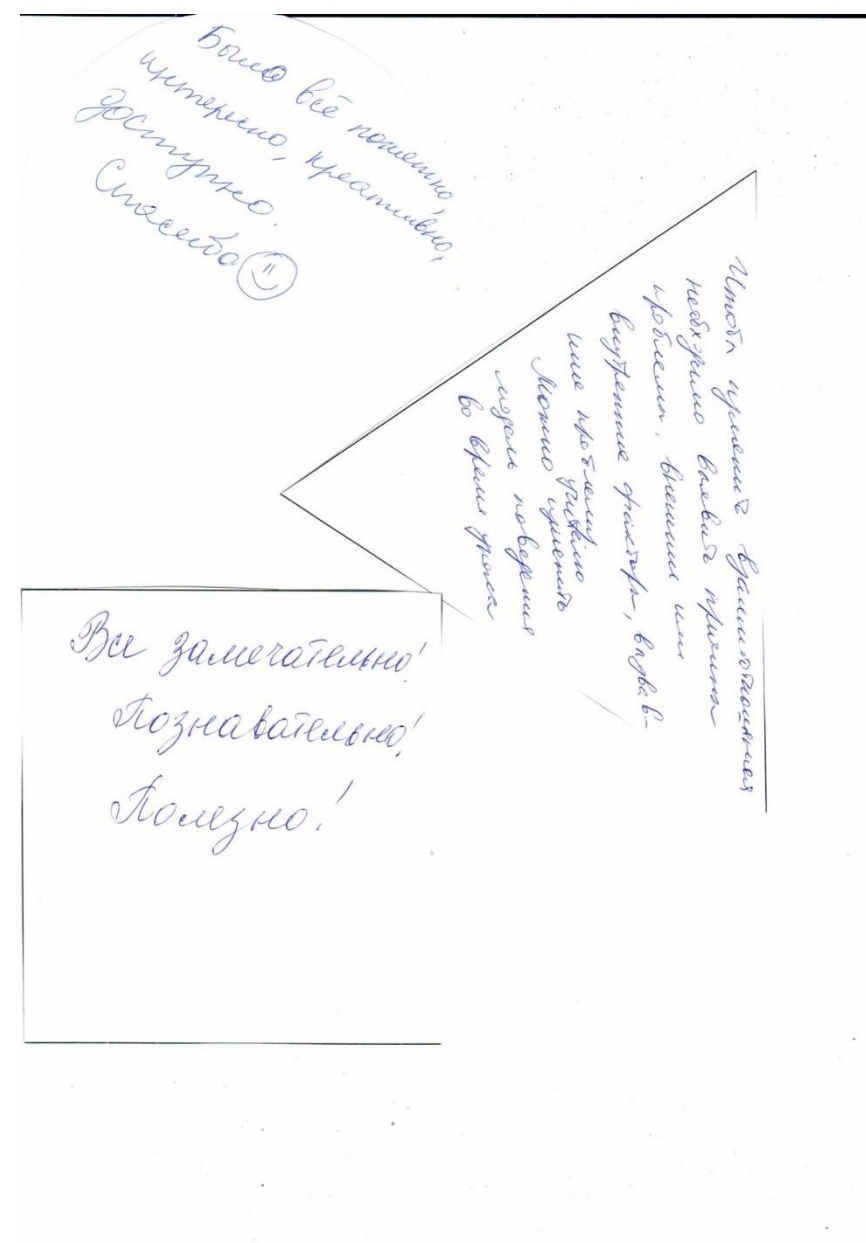 Было всё понятно,
интересно, креативно,
доступно.
Спасибо
Чтобы изменить взаимоотношения
необходимо выявить причины
проблемы, внешние или
внутренние факторы, вызвав-
шие проблему
Учителю
можно изменить
модель поведения
во время урока
Все замечательно!
Познавательно!
Полезно!